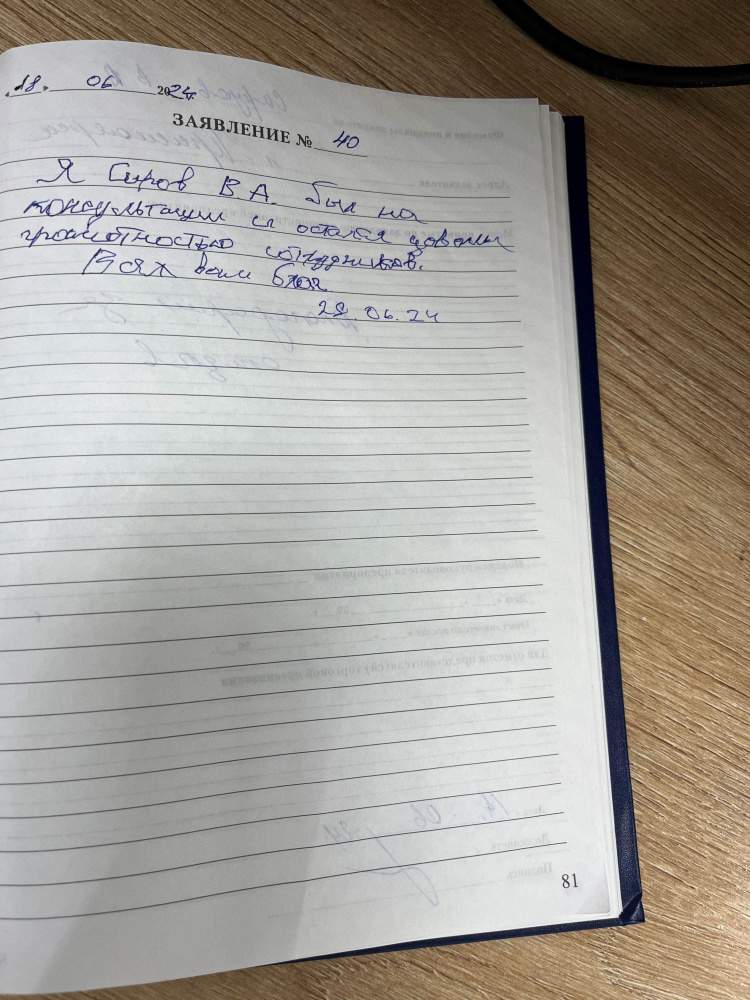 18. 06 2024.
ЗАЯВЛЕНИЕ № 40
Я Сиров В А. был на
консультации и остался доволен
грамотностью сотрудников.
Всех вам благ
28.06.24
81